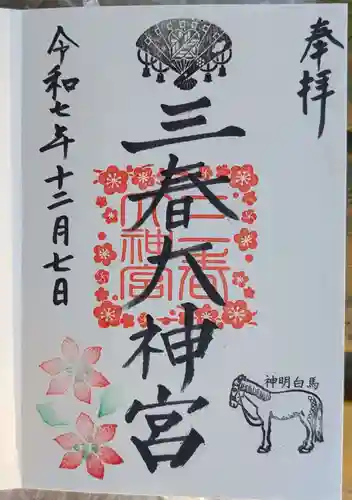 奉拝
三春大神宮
三春
大神宮
神明白馬
令和七年十二月七日